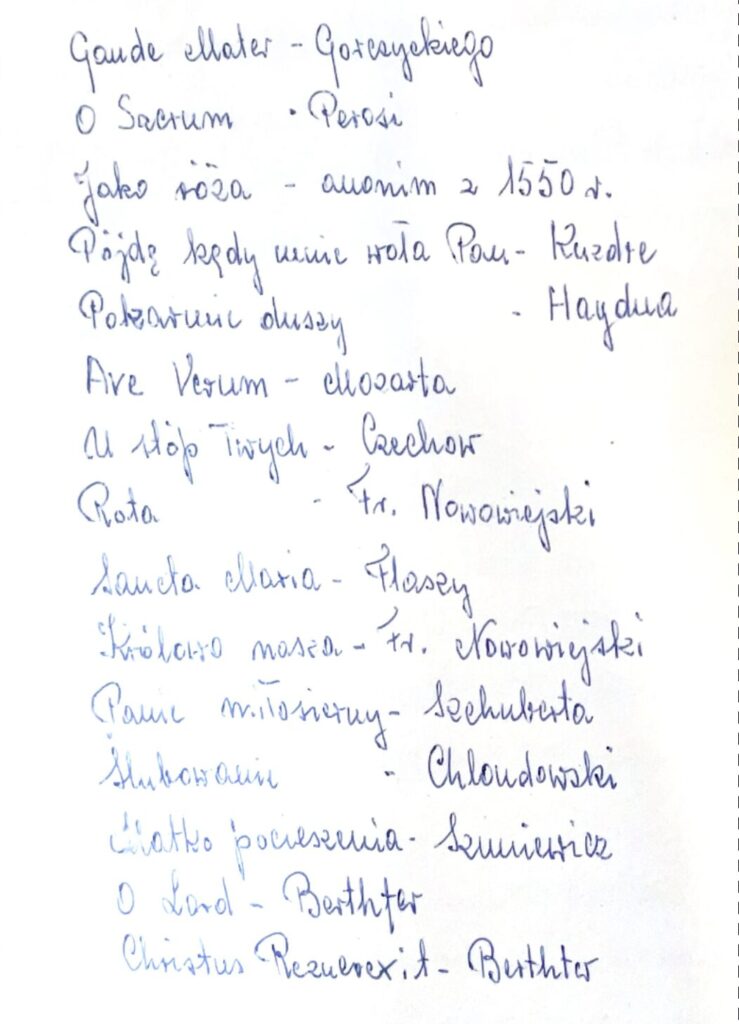 Gaude Mater - Gorczyckiego
O Sacrum - Perosi
Jako róża - anonim z 1550 r.
Pójdę kędy mnie woła Pan - Kuzdre
Pokarmie duszy - Haydna
Ave Verum - Mozarta
U stóp Twych - Czechow
Rota - Fr. Nowowiejski
Sancta Maria - Flaszy
Królowo nasza - Fr. Nowowiejski
Panie miłosierny - Szchuberta
Ślubowanie - Chlondowski
Matko pocieszenia - Szmiewicz
O Lord - Berthter
Christus Rezurexit - Berthter